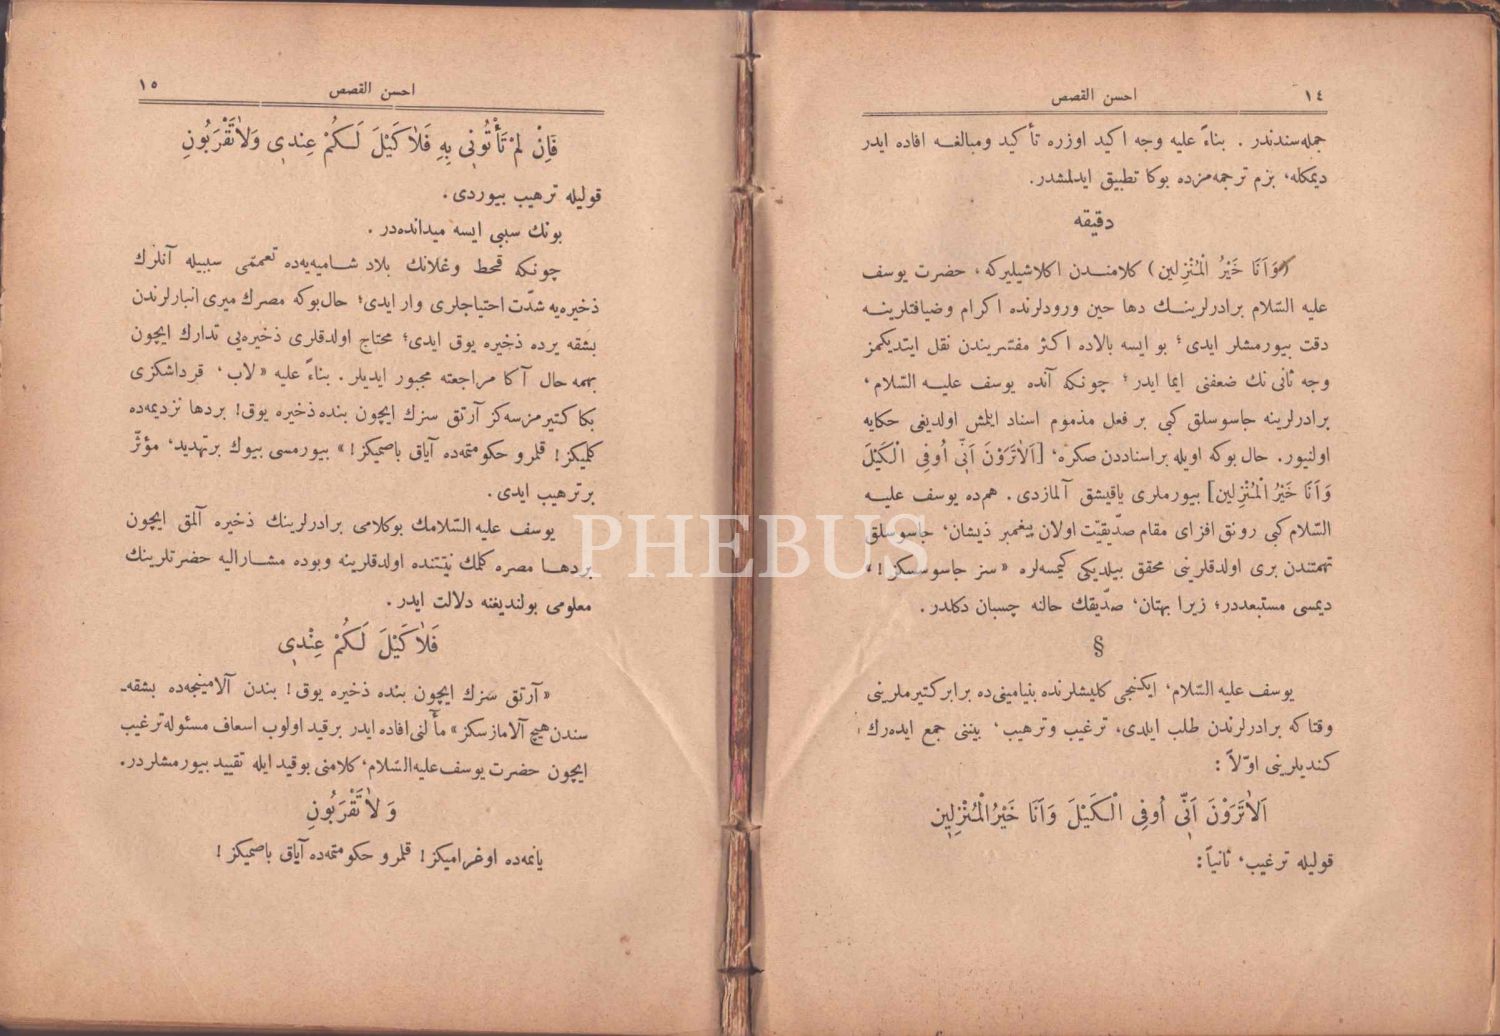 ١٤
احسن القصص
جمله‌سندندر . بناءً عليه وجه اكيد اوزره تأكيد ومبالغه افاده ايدر
ديمكله، بزم ترجمه‌مزده بوكا تطبيق ايدلمشدر.
دقيقه
(وَاَنَا خَيْرُ الْمُنْزِلين) كلامندن اكلاشيليركه، حضرت يوسف
عليه السّلام برادرلرينك دها حين ورودلرنده اكرام وضيافتلرينه
دقت بيورمشلر ايدى؛ بو ايسه بالاده اكثر مفسّريندن نقل ايتديكمز
وجه ثانى نك ضعفنى ايما ايدر؛ چونكه آنده يوسف عليه السّلام،
برادرلرينه جاسوسلق كبى بر فعل مذموم اسناد ايلمش اولديغى حكايه
اولنيور. حال بوكه اويله براسناددن صكره، [اَلاٰتَرَوْنَ اَنّى اُوفِى الْكَيْلَ
وَاَنَا خَيْرُ الْمُنْزِلين] بيورملرى ياقيشق آلمازدى. هم‌ده يوسف عليه
السّلام كبى رونق افزاى مقام صدّيقيّت اولان پيغمبر ذيشان، جاسوسلق
تهمتندن برى اولدقلرينى محقق بيلديكى كيمسه‌لره «سز جاسوسسكز!»
ديمسى مستبعددر؛ زيرا بهتان، صدّيقك حالنه چسبان دكلدر.
§
يوسف عليه السّلام، ايكنجى كليشلرنده بنيامينى‌ده برابر كتيرملرينى
وقتا كه برادرلرندن طلب ايلدى، ترغيب وترهيب، بيننى جمع ايده‌رك
كنديلرينى اوّلاً :
اَلاٰتَرَوْنَ اَنّى اُوفِى الْكَيْلَ وَاَنَا خَيْرُ الْمُنْزِلين
قوليله ترغيب، ثانياً :
١٥
احسن القصص
فَاِنْ لَمْ تَأْتُونى بِهِ فَلاٰ كَيْلَ لَكُمْ عِنْدى وَلاٰ تَقْرَبُونِ
قوليله ترهيب بيوردى.
بونك سببى ايسه ميدانده‌در .
چونكه قحط وغلانك بلاد شاميه‌يه‌ده تعممّى سببيله آنلرك
ذخيره‌يه شدّت احتياجلرى وار ايدى؛ حال بوكه مصرك ميرى انبارلرندن
بشقه يرده ذخيره يوق ايدى؛ محتاج اولدقلرى ذخيره‌يى تدارك ايچون
بهمه حال آكا مراجعته مجبور ايديلر. بناءً عليه «لاب، قرداشكزى
بكا كتيرمزسه‌كز آرتق سزك ايچون بنده ذخيره يوق! بردها نزديمه‌ده
كلميكز! قلمرو حكومتمه‌ده آياق باصميكز!» بيورمسى بيوك برتهديد، مؤثّر
برترهيب ايدى.
يوسف عليه السّلامك بوكلامى برادرلرينك ذخيره آلمق ايچون
بردها مصره كلمك نيّتنده اولدقلرينه وبوده مشاراليه حضرتلرينك
معلومى بولنديغنه دلالت ايدر.
فَلاٰ كَيْلَ لَكُمْ عِنْدى
«آرتق سزك ايچون بنده ذخيره يوق! بندن آلامينجه‌ده بشقه-
سندن هيچ آلامازسكز» مآلنى افاده ايدر برقيد اولوب اسعاف مسئوله ترغيب
ايچون حضرت يوسف عليه السّلام، كلامنى بوقيد ايله تقييد بيورمشلردر.
وَلاٰ تَقْرَبُونِ
يانمه‌ده اوغراميكز! قلمرو حكومتمه‌ده آياق باصميكز!
PHEBUS